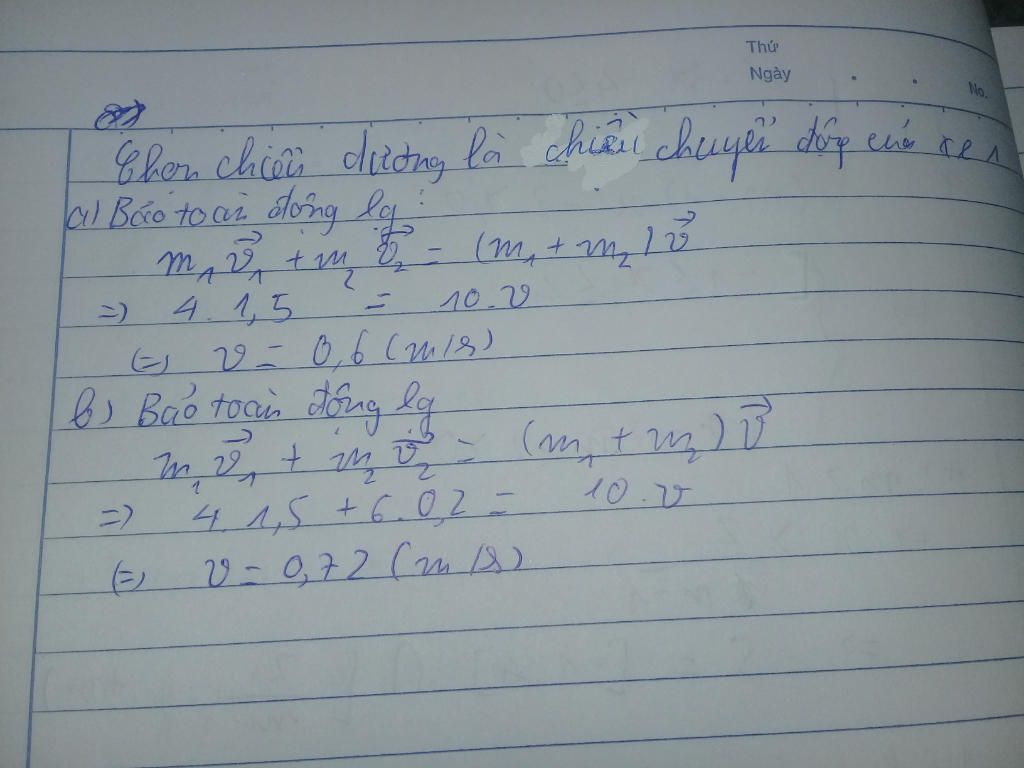 Thứ
Ngày
No.
Chọn chiều dương là chiều chuyển động của xe 1
a) Bảo toàn động lg:
m₁v⃗₁ + m₂v⃗₂ = (m₁ + m₂)v⃗
=> 4.1,5 = 10.v
(=) v = 0,6 (m/s)
b) Bảo toàn động lg
m₁v⃗₁ + m₂v⃗₂ = (m₁ + m₂)v⃗
=> 4.1,5 + 6.0,2 = 10.v
(=) v = 0,72 (m/s)